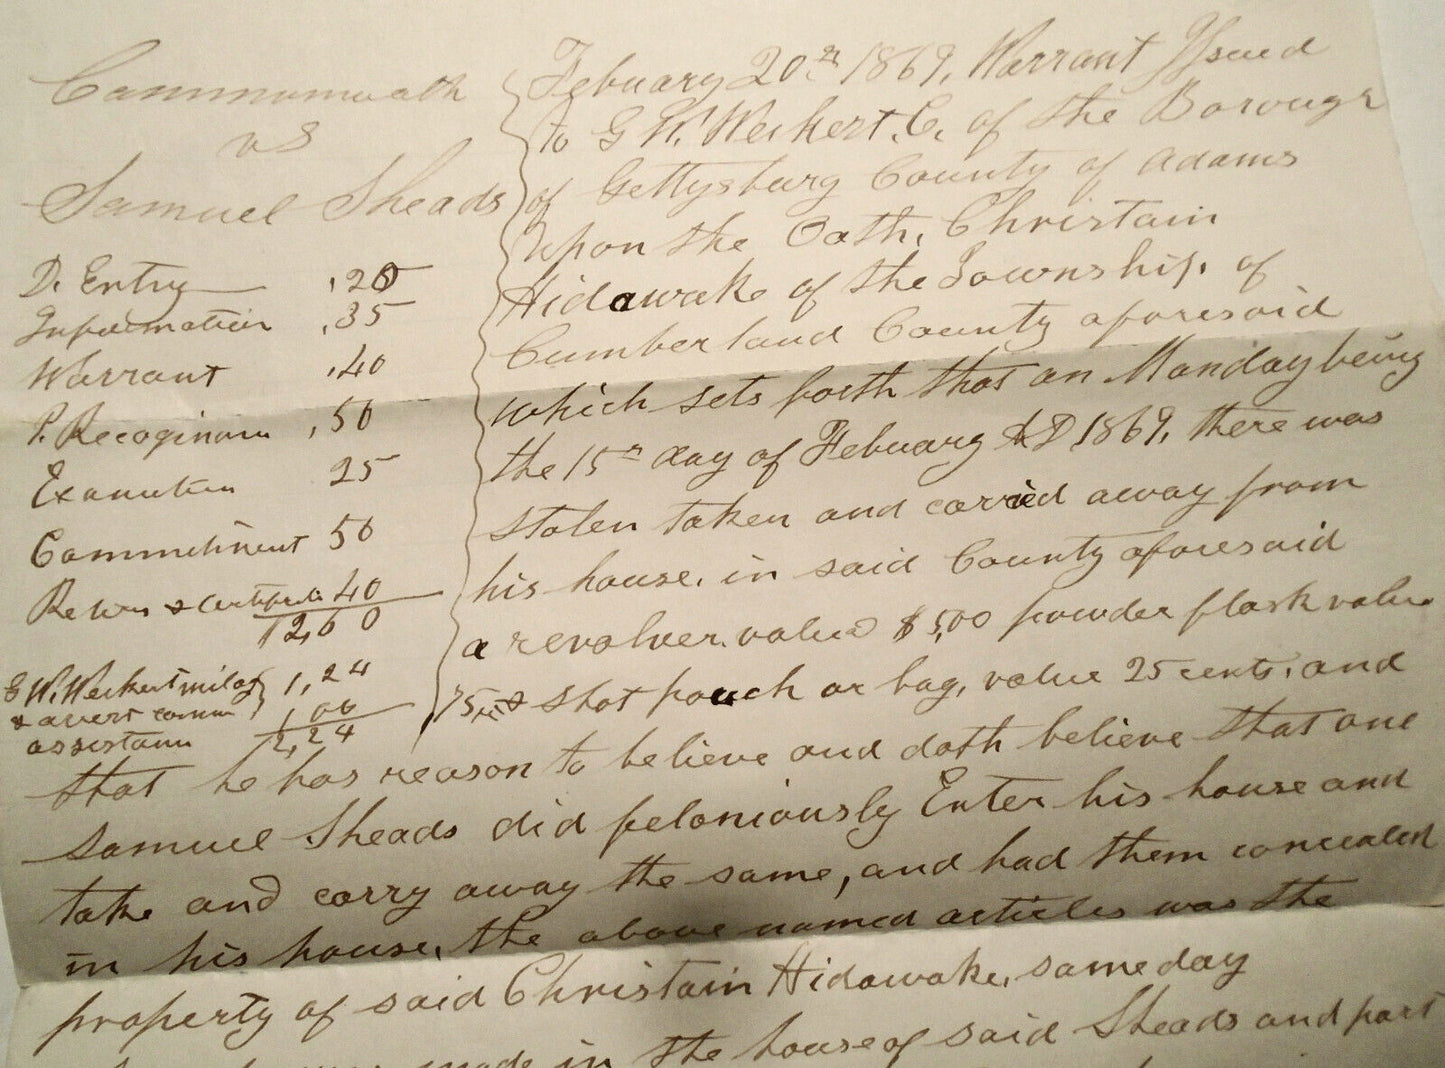 Commonwealth
vs
Samuel Sheads
D. Entry ,20
Information ,35
Warrant ,40
P. Recoginian ,50
Examution 25
Commitment 50
Return & Certificate 40
2,60
G W. Weikert milag 1,24
& arrest comm 1,00
assistann 2,24
Febuary 20th 1869, Warrant Issued
to G W. Weikert, C, of the Borough
of Gettysburg County of Adams
upon the Oath, Christain
Hidawake of the Township, of
Cumberland County aforesaid
which sets forth that on Monday being
the 15th day of Febuary AD 1869, there was
stolen taken and carried away from
his house, in said County aforesaid
a revolver, value $5,00 powder flask value
75 cts shot pouch or bag, value 25 cents, and
that he has reason to believe and doth believe that one
Samuel Sheads did feloniously Enter his house and
take and carry away the same, and had them concealed
in his house, the above named articles was the
property of said Christain Hidawake, same day
made in the house of said Sheads and part